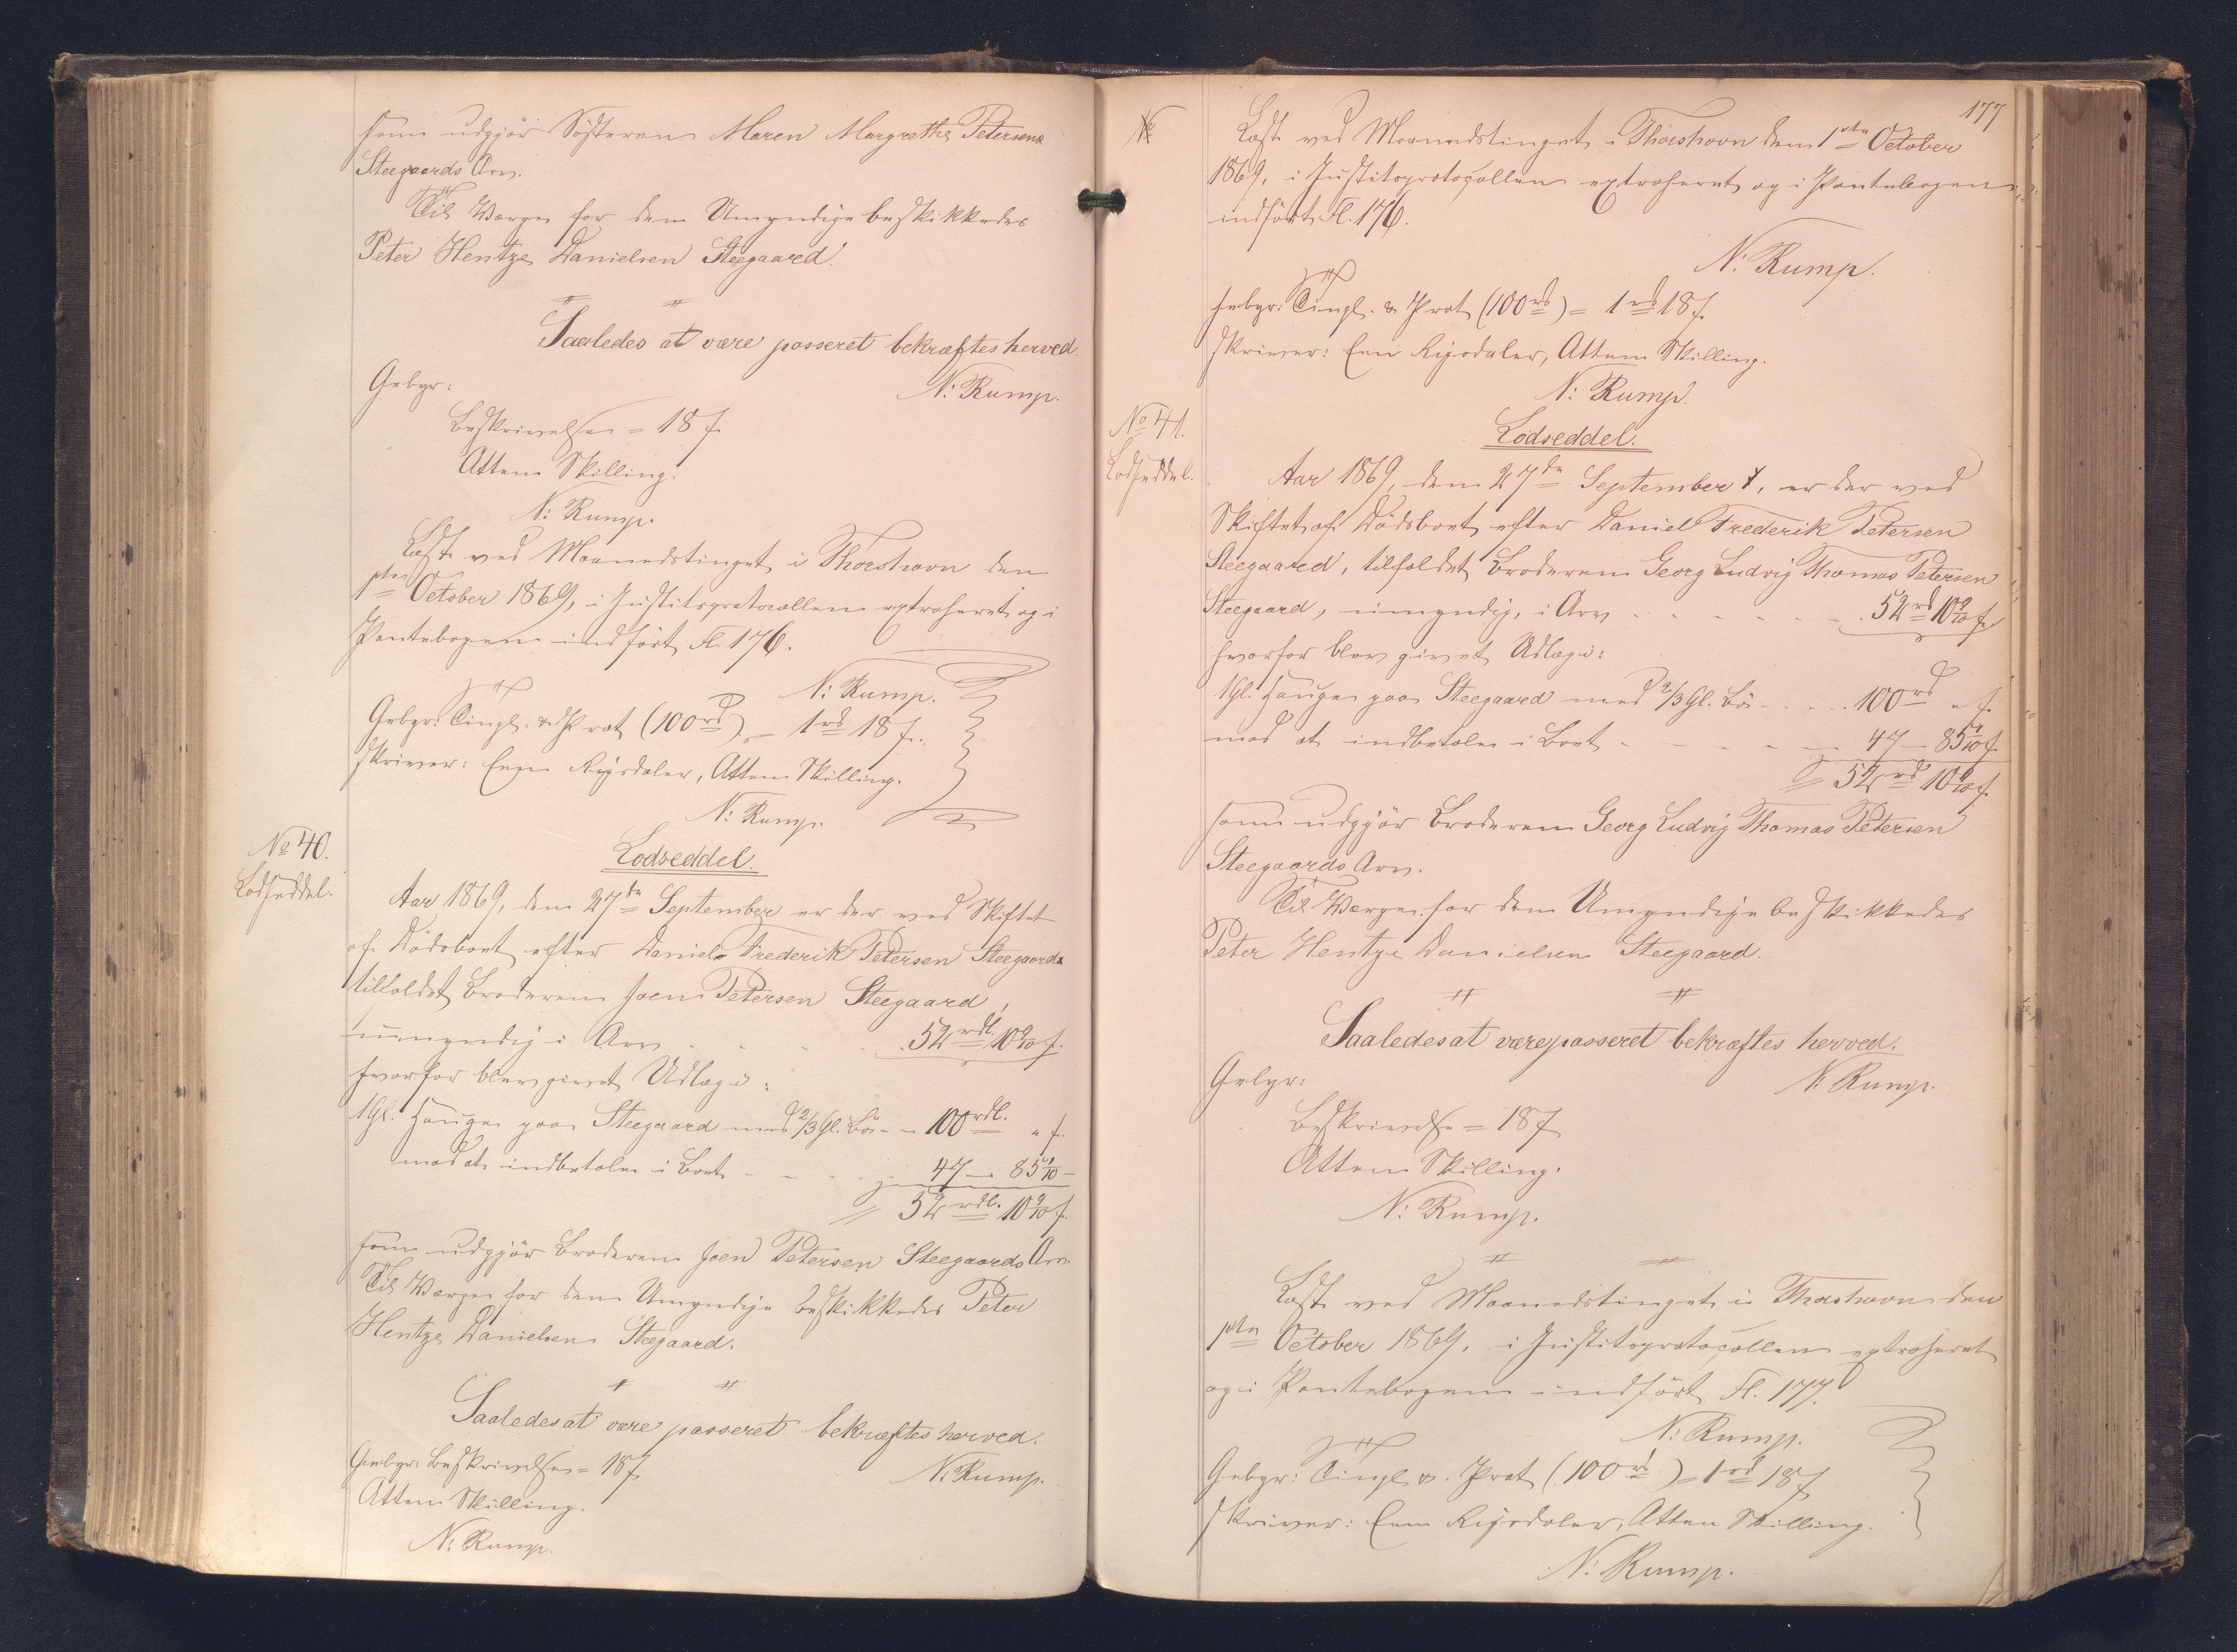 som udgjør Søsteren Maren Margrethe Petersens
Steegaards Arv.
Til Værge for den Umyndige beskikkedes
Peter Hentze Danielsen Steegaard.
Saaledes at være passeret bekræftes herved.
Gebyr:
N: Rump.
Beskrivelsen = 18 f.
Atten Skilling.
N: Rump.
Læst ved Maanedstinget i Thorshavn den
1ste October 1869, i Justitsprotocollen extraheret og i
Pantebogen indført Fl. 176.
N: Rump.
Gebyr: Tingl. & Prot (100 rd) = 1 rd 18 f.
skriver: Een Rigsdaler, Atten Skilling.
N: Rump.
No 40.
Lodseddel.
Lodseddel.
Aar 1869, den 27de September er der ved Skiftet
af Dødsboet efter Daniel Frederik Petersen Steegaard
tilfaldet Broderen Joen Petersen Steegaard,
umyndig i Arv . . . 52 rdl. 10 9/10 f.
hvorfor blev givet Udlæg i:
1 Gl. Hauge paa Steegaard med 2/3 Gl. Bø - - 100 rdl. " f.
mod at indbetale i Boet - - . . 47 — 85 1/10 -
= 52 rdl. 10 9/10 f.
som udgjør Broderen Joen Petersen Steegaards Arv.
Til Værge for den Umyndige beskikkedes Peter
Hentze Danielsen Steegaard.
Saaledes at være passeret bekræftes herved.
Gebyr: Beskrivelsen = 18 f.
N: Rump.
Atten Skilling.
N: Rump.
177
Læst ved Maanedstinget i Thorshavn den 1ste October
1869, i Justitsprotocollen extraheret og i Pantebogen
indført Fl. 176.
N: Rump.
Gebyr: Tingl. & Prot (100 rd) = 1 rd 18 f.
skriver: Een Rigsdaler, Atten Skilling.
N: Rump.
No 41.
Lodseddel.
Lodseddel.
Aar 1869, den 27de September, er der ved
Skiftet af Dødsboet efter Daniel Frederik Petersen
Steegaard, tilfaldet Broderen Georg Ludvig Thomas Petersen
Steegaard, umyndig, i Arv . . . . . 52 rd 10 9/10 f.
hvorfor blev givet Udlæg i:
1 Gl. Hauge paa Steegaard med 2/3 Gl. Bø - . . . 100 rd " f.
mod at indbetale i Boet - - - - - 47 — 85 1/10 f.
= 52 rd 10 9/10 f.
som udgjør Broderen Georg Ludvig Thomas Petersen
Steegaards Arv.
Til Værge for den Umyndige beskikkedes
Peter Hentze Danielsen Steegaard.
Saaledes at være passeret bekræftes herved.
Gebyr:
N: Rump.
Beskrivelse = 18 f
Atten Skilling.
N: Rump.
Læst ved Maanedstinget i Thorshavn den
1ste October 1869, i Justitsprotocollen extraheret
og i Pantebogen indført Fl. 177.
N: Rump.
Gebyr: Tingl. & Prot (100 rd) = 1 rd 18 f
skriver: Een Rigsdaler, Atten Skilling.
N: Rump.